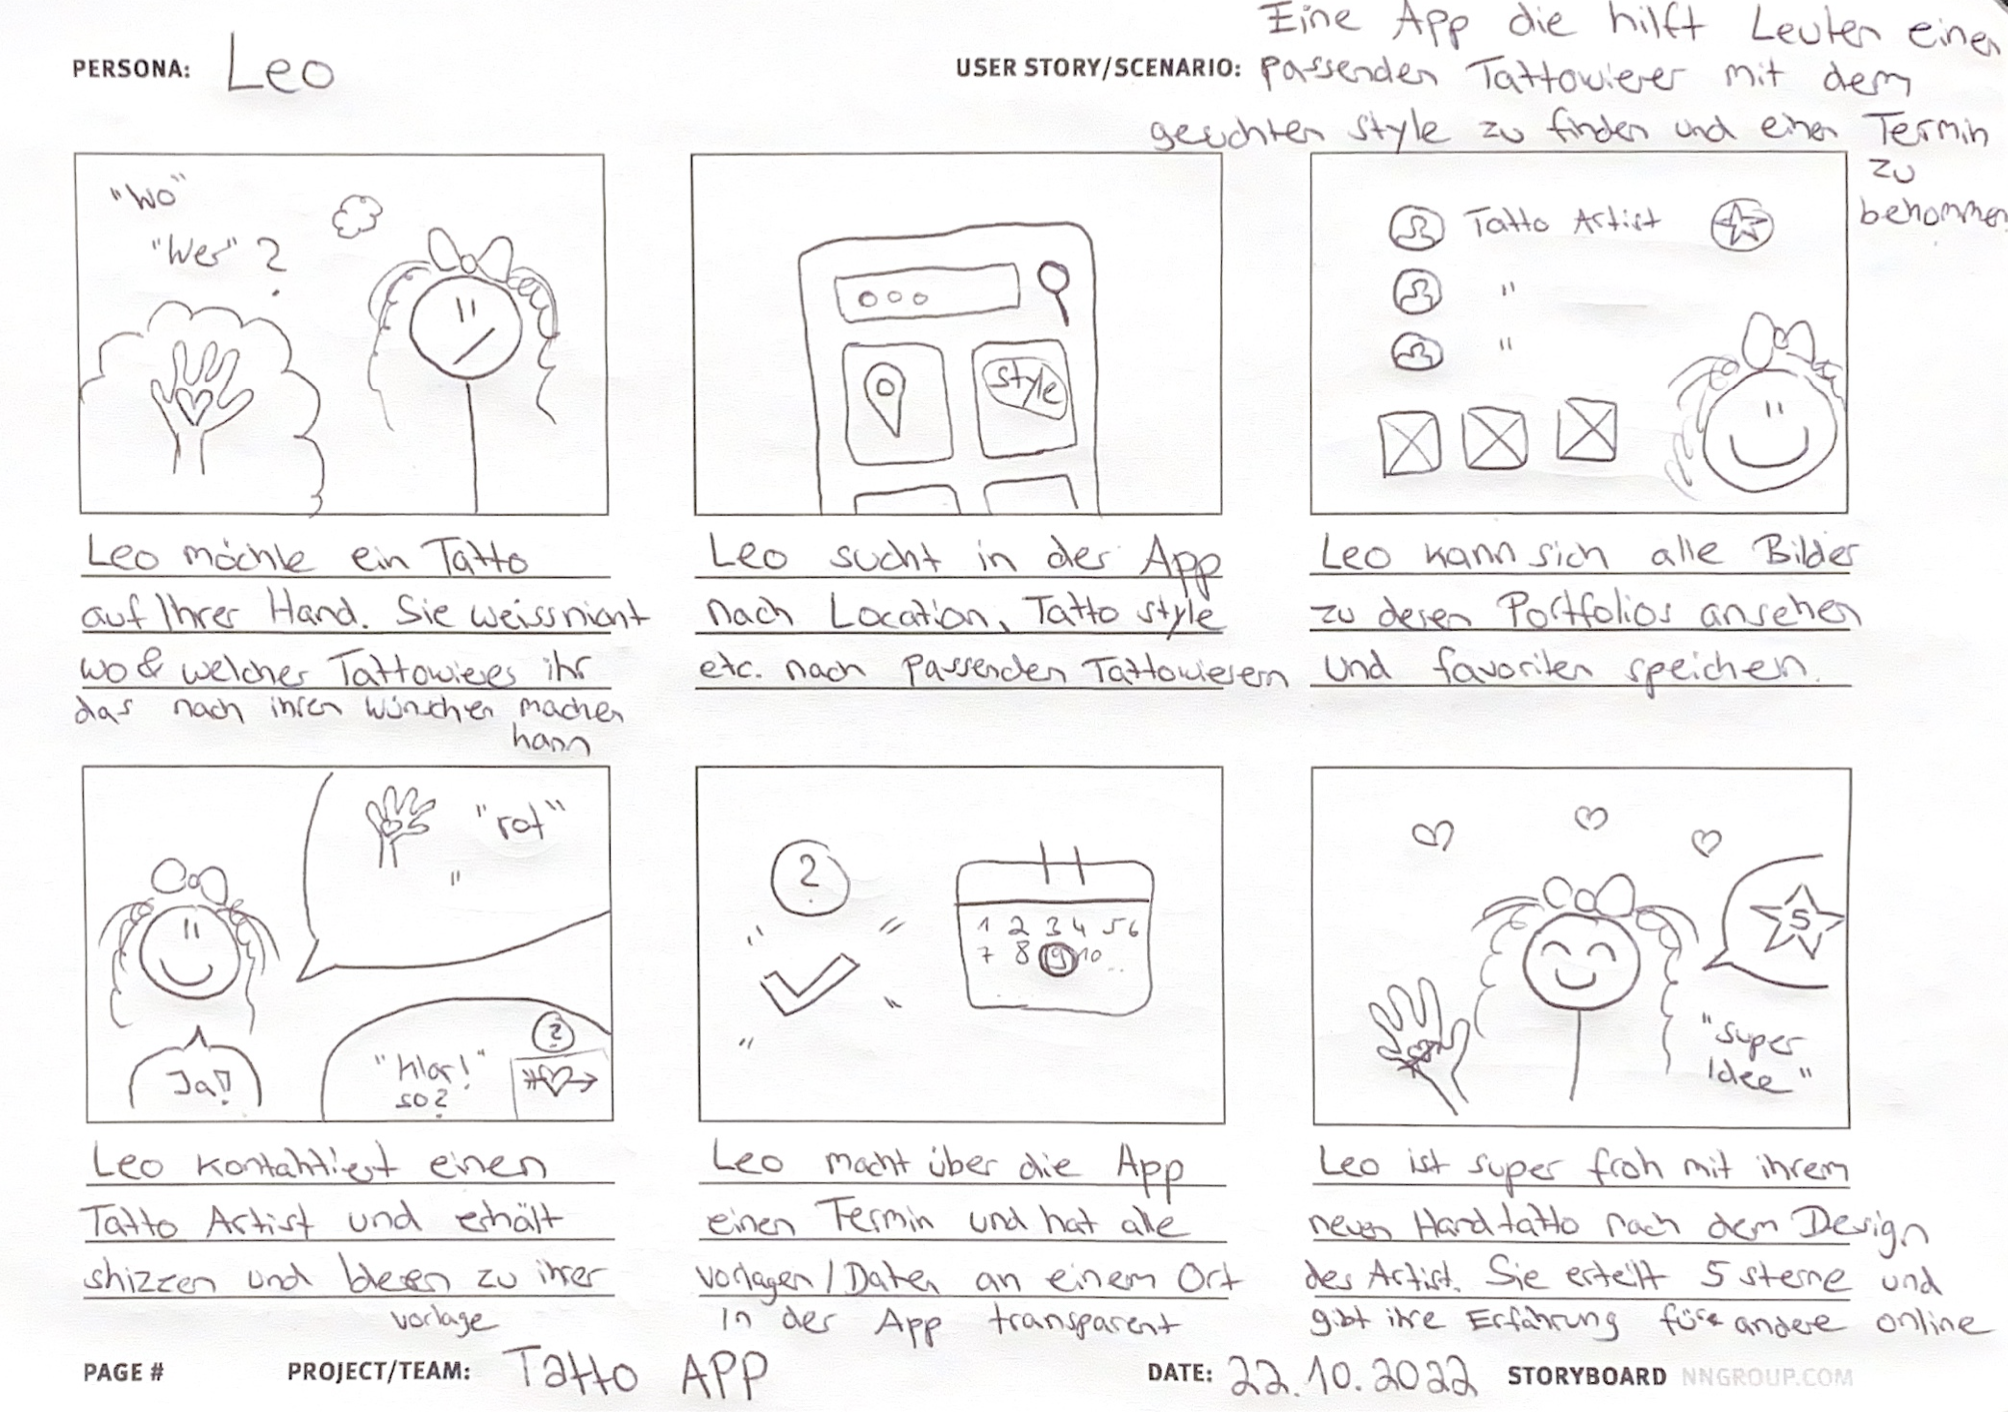 PERSONA: Leo
USER STORY/SCENARIO: Eine App die hilft Leuten einen
passenden Tattowierer mit dem
gesuchten style zu finden und einen Termin
zu
bekommen
"Wo"
"Wer" ?
Leo möchte ein Tatto
auf Ihrer Hand. Sie weiss nicht
wo & welcher Tattowierer ihr
das nach ihren wünschen machen
kann
style
Leo sucht in der App
nach Location, Tatto style
etc. nach passenden Tattowierern
Tatto Artist
"
"
Leo kann sich alle Bilder
zu deren Portfolios ansehen
und favoriten speichern.
"rot"
"
Ja!!
"klar!"
so?
?
Leo kontaktiert einen
Tatto Artist und erhält
skizzen und Ideen zu ihrer
vorlage
?
1 2 3 4 5 6
7 8 9 10 ..
Leo macht über die App
einen Termin und hat alle
vorlagen/Daten an einem Ort
in der App transparent
5
"super
Idee"
Leo ist super froh mit ihrem
neuen Handtatto nach dem Design
des Artist. Sie erteilt 5 sterne und
gibt ihre Erfahrung für andere online
PAGE #
PROJECT/TEAM: Tatto APP
DATE: 22.10.2022
STORYBOARD NNGROUP.COM